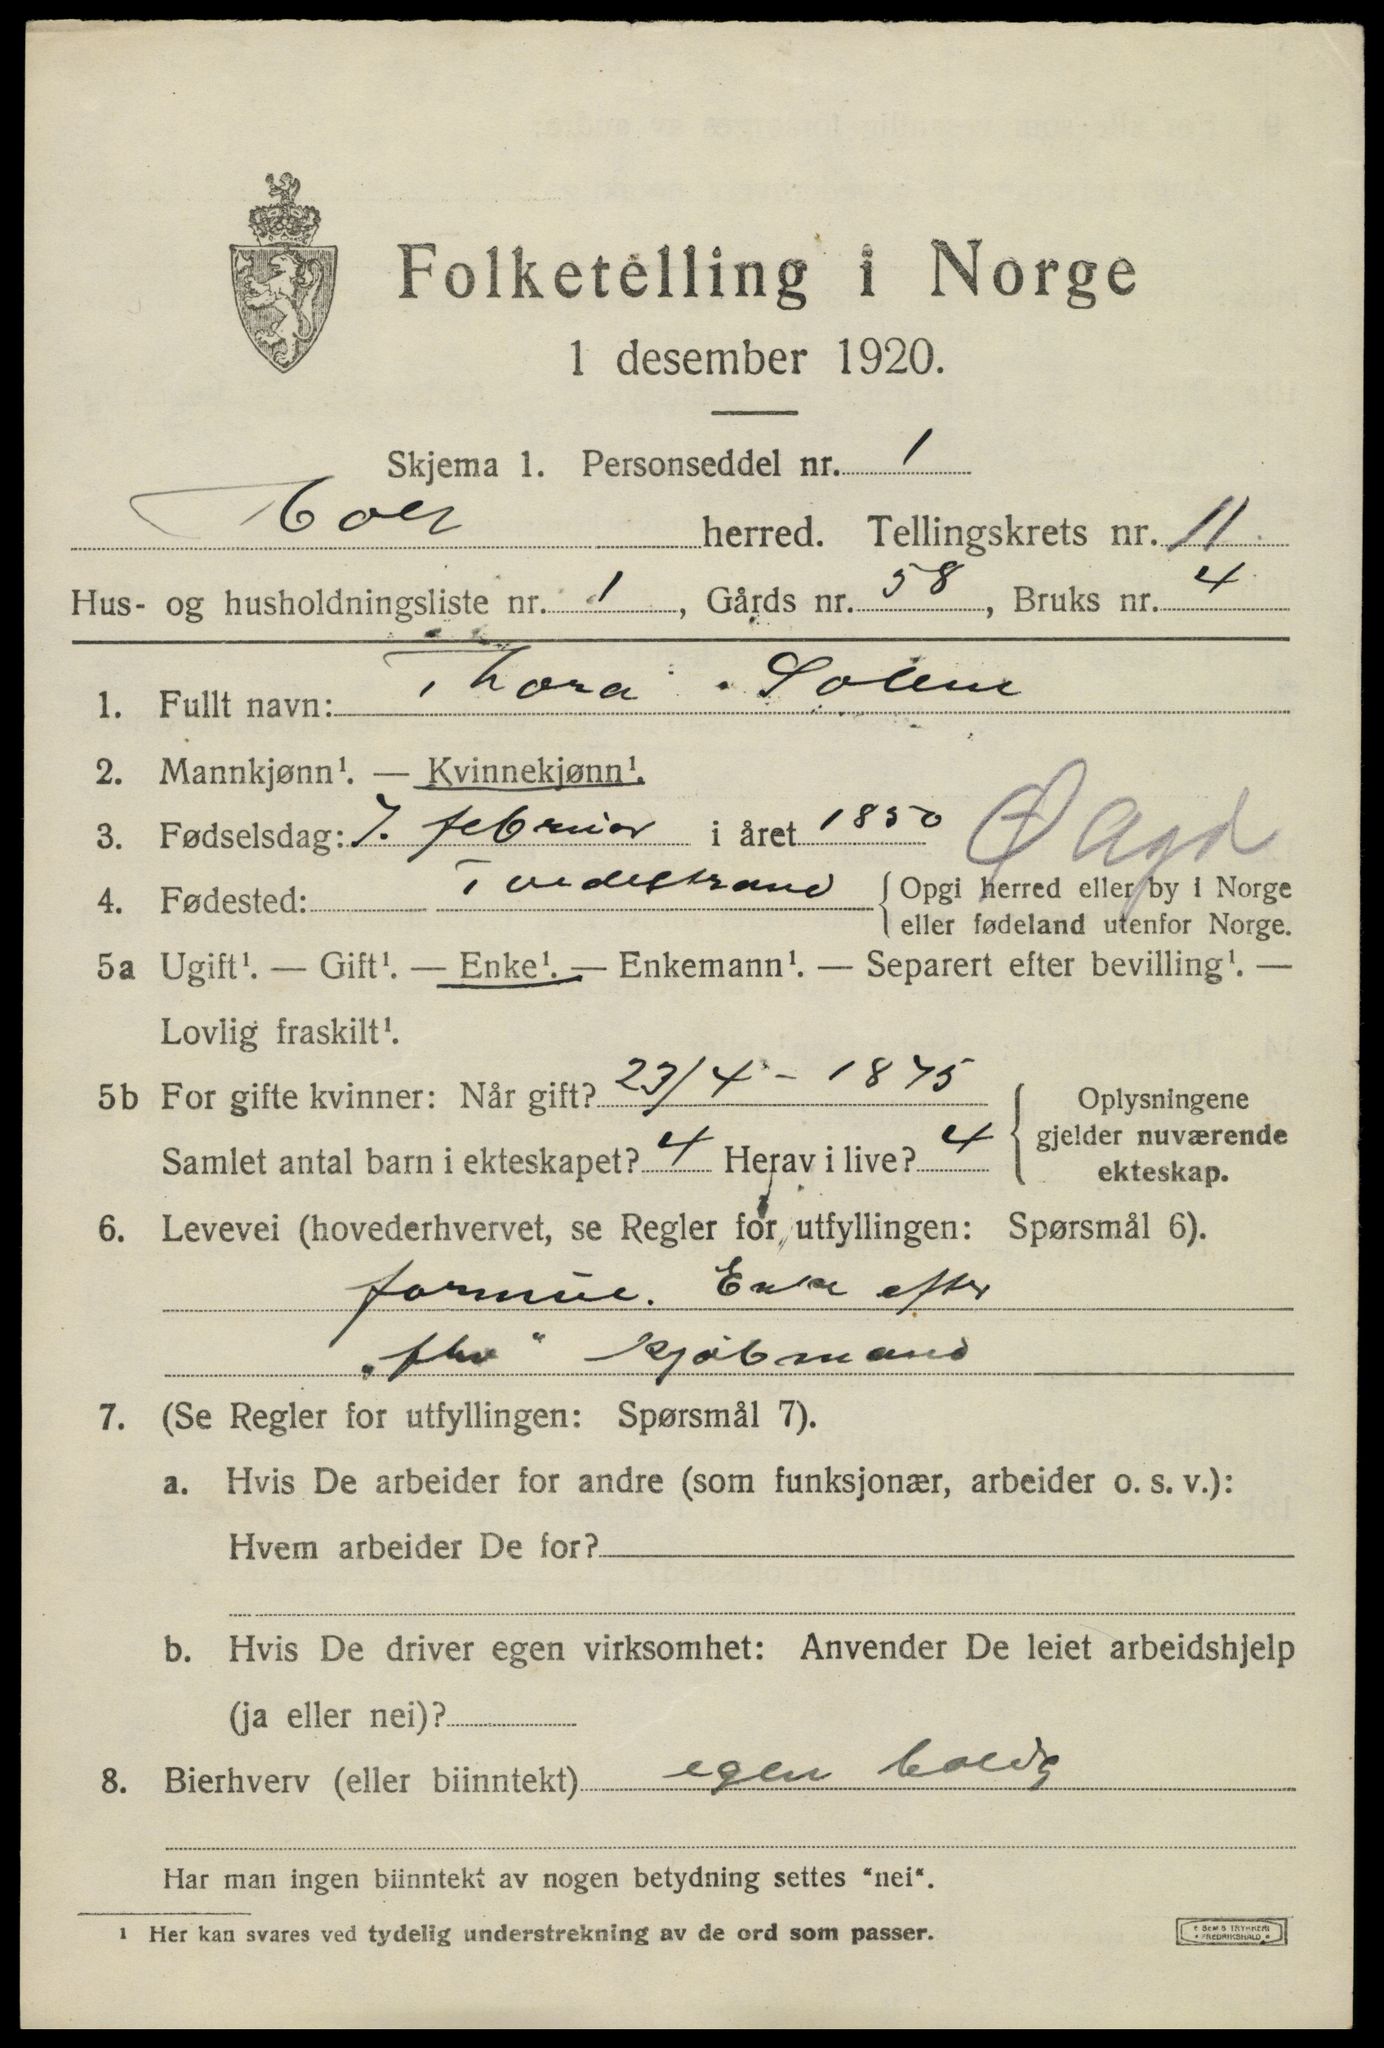 Folketelling i Norge
1 desember 1920.
Skjema 1. Personseddel nr. 1
herred. Tellingskrets nr. 11
Hus- og husholdningsliste nr. 1, Gårds nr. 58, Bruks nr. 4
1. Fullt navn: Thora Solem
2. Mannkjønn¹. — Kvinnekjønn¹.
3. Fødselsdag: 7. februar i året 1850 Ø Agd
4. Fødested: Tvedestrand { Opgi herred eller by i Norge
eller fødeland utenfor Norge.
5a Ugift¹. — Gift¹. — Enke¹. — Enkemann¹. — Separert efter bevilling¹. —
Lovlig fraskilt¹.
5b For gifte kvinner: Når gift? 23/4 - 1875
Samlet antal barn i ekteskapet? 4 Herav i live? 4
{ Oplysningene
gjelder nuværende
ekteskap.
6. Levevei (hovederhvervet, se Regler for utfyllingen: Spørsmål 6).
formue. Enke efter
„fhv“ kjøbmand
7. (Se Regler for utfyllingen: Spørsmål 7).
a. Hvis De arbeider for andre (som funksjonær, arbeider o. s. v.):
Hvem arbeider De for?
b. Hvis De driver egen virksomhet: Anvender De leiet arbeidshjelp
(ja eller nei)?
8. Bierhverv (eller biinntekt) egen bolig
Har man ingen biinntekt av nogen betydning settes "nei".
¹ Her kan svares ved tydelig understrekning av de ord som passer.
E SEMS TRYKKERI
FREDRIKSHALD